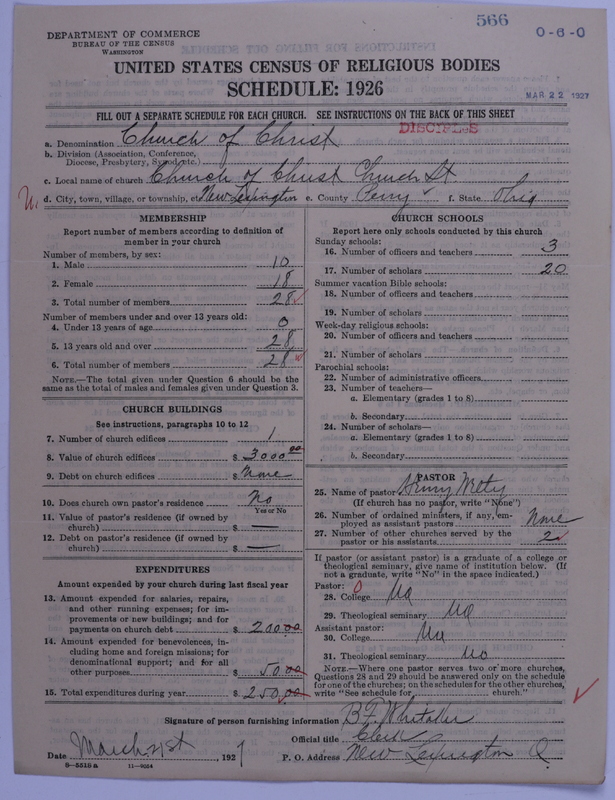 566
0-6-0
DEPARTMENT OF COMMERCE
BUREAU OF THE CENSUS
WASHINGTON
UNITED STATES CENSUS OF RELIGIOUS BODIES
SCHEDULE: 1926
MAR 22 1927
FILL OUT A SEPARATE SCHEDULE FOR EACH CHURCH. SEE INSTRUCTIONS ON THE BACK OF THIS SHEET
DISCIPLES
a. Denomination Church of Christ
b. Division (Association, Conference, Diocese, Presbytery, Synod, etc.)
c. Local name of church Church of Christ Church St
d. City, town, village, or township, etc. New Lexington e. County Perry f. State Ohio
MEMBERSHIP
Report number of members according to definition of member in your church
Number of members, by sex:
1. Male 10
2. Female 18
3. Total number of members 28
Number of members under and over 13 years old:
4. Under 13 years of age 0
5. 13 years old and over 28
6. Total number of members 28
NOTE.—The total given under Question 6 should be the same as the total of males and females given under Question 3.
CHURCH BUILDINGS
See instructions, paragraphs 10 to 12
7. Number of church edifices 1
8. Value of church edifices $ 3000 00
9. Debt on church edifices $ None
10. Does church own pastor's residence? No
Yes or No
11. Value of pastor's residence (if owned by church) $ —
12. Debt on pastor's residence (if owned by church) $ —
EXPENDITURES
Amount expended by your church during last fiscal year
13. Amount expended for salaries, repairs, and other running expenses; for improvements or new buildings; and for payments on church debt $ 200.00
14. Amount expended for benevolences, including home and foreign missions; for denominational support; and for all other purposes $ 50.00
15. Total expenditures during year $ 250.00
CHURCH SCHOOLS
Report here only schools conducted by this church
Sunday schools:
16. Number of officers and teachers 3
17. Number of scholars 20
Summer vacation Bible schools:
18. Number of officers and teachers
19. Number of scholars
Week-day religious schools:
20. Number of officers and teachers
21. Number of scholars
Parochial schools:
22. Number of administrative officers
23. Number of teachers—
a. Elementary (grades 1 to 8)
b. Secondary
24. Number of scholars—
a. Elementary (grades 1 to 8)
b. Secondary
PASTOR
25. Name of pastor Henry
(If church has no pastor, write "None")
26. Number of ordained ministers, if any, employed as assistant pastors None
27. Number of other churches served by the pastor or his assistants 2
If pastor (or assistant pastor) is a graduate of a college or theological seminary, give name of institution below. (If not a graduate, write "No" in the space indicated.)
Pastor:
28. College No
29. Theological seminary No
Assistant pastor:
30. College No
31. Theological seminary No
NOTE.—Where one pastor serves two or more churches, Questions 28 and 29 should be answered only on the schedule for one of the churches; on the schedules for the other churches, write "See schedule for church."
Signature of person furnishing information B.F. Whitaker
Official title Clerk
Date March 21st, 1927 P. O. Address New Lexington O
6—5519 a 11—9024